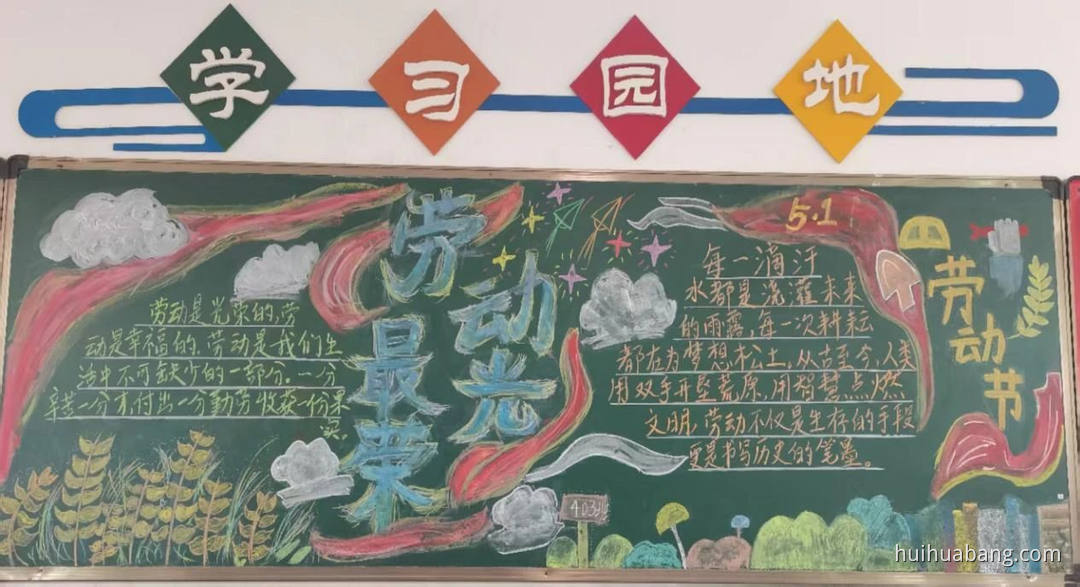 学习园地
劳动
最光荣
劳动是光荣的,劳
动是幸福的,劳动是我们生
活中不可缺少的一部分。一分
辛苦一分才,付出一分勤劳收获一份果
实。
5.1
每一滴汗
水都是浇灌未来
的雨露,每一次耕耘
都在为梦想松土,从古至今,人类
用双手开垦荒原,用智慧点燃
文明,劳动不仅是生存的手段
更是书写历史的笔墨。
劳动节
403
huihuabang.com